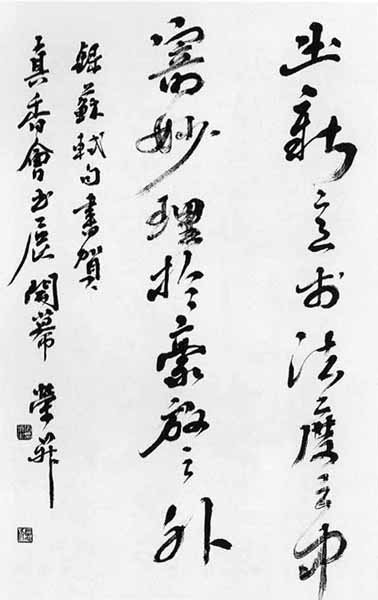 出新意於法度之中
寄妙理於豪放之外
錄蘇軾句書賀
真香會書展開幕 榮